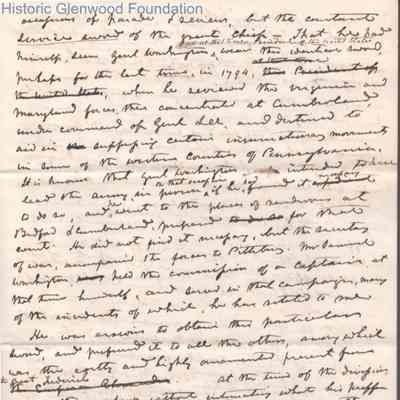 Historic Glenwood Foundation
occasions of parade & review, but the constant
service sword of the great Chief – That he had
himself, seen Genl Washington, wear this venerable sword,
perhaps for the last time, in 1794,
the United States, when he reviewed the Virginia and
Maryland forces, then concentrated at Cumberland
under command of Genl Lee, and destined to
aid in suppressing certain insurrectionary movements
in some of the western counties of Pennsylvania.
It is known that Genl Washington intended to have
lead the army in person, if he found it necessary
to do so, and went to the places of rendezvous at
Bedford & Cumberland, prepared for that
event. He did not find it necessary, but the secretary
of war, accompanied the forces to Pittsburg. Mr Samuel
Washington, held the commission of a Captain at
that time himself, and served in that campaign, many
of the incidents of which, he has related to me
He was anxious to obtain this particular
sword, and preferred it to all the others, among which
was the costly and highly ornamented present from
the great Frederick at the time of the division